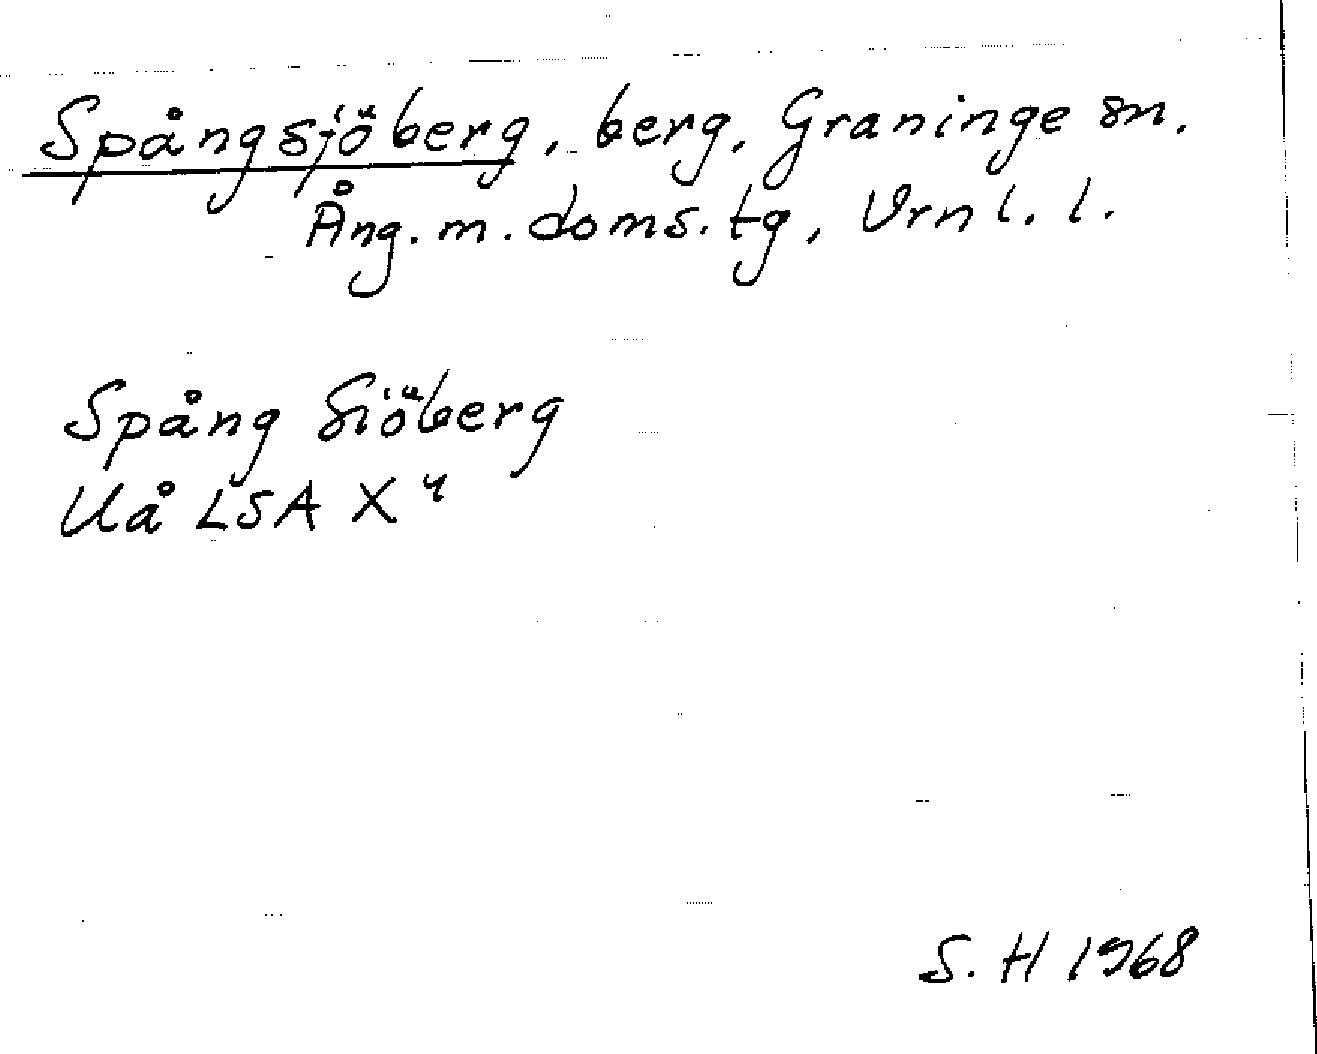 Spångsjöberg, berg, Graninge sn.
Ång. m. doms.tg, Vrnl. l.
Spång Siöberg
Uå LSA X 4
S. H 1968